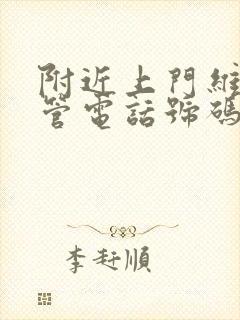 附近上門維
管電話號碼
李玨順